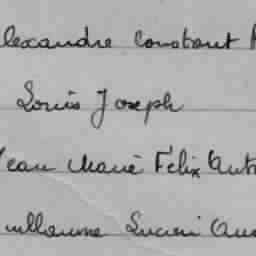 lexandre Constant
Louis Joseph
Jean Marie Félix Ant
uillaume Lucien Au